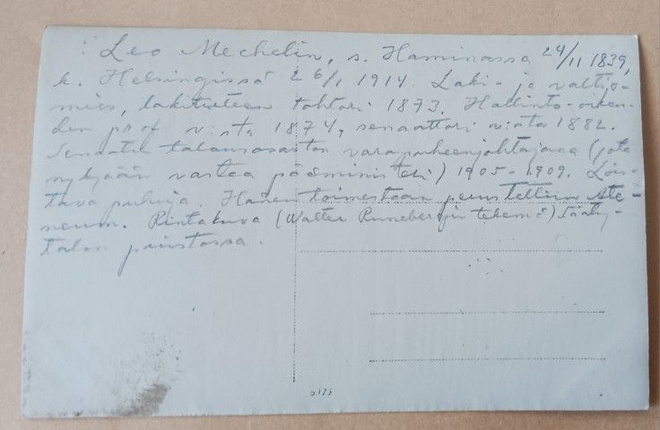 Leo Mechelin, s. Haminassa 24/11 1839,
k. Helsingissä 26/1 1914. Laki- ja valtio-
mies, lakitieteen tohtori 1873. Hallinto-oikeu-
den prof. v:sta 1874, senaattori v:sta 1882.
Senaatin talousosaston varapuheenjohtajana (jota
nykyään vastaa pääministeri) 1905-1909. Lois-
tava puhuja. Hänen toimestaan perustettiin Ate-
neum. Rintakuva (Walter Runebergin tekemä) Sääty-
talon puistossa.